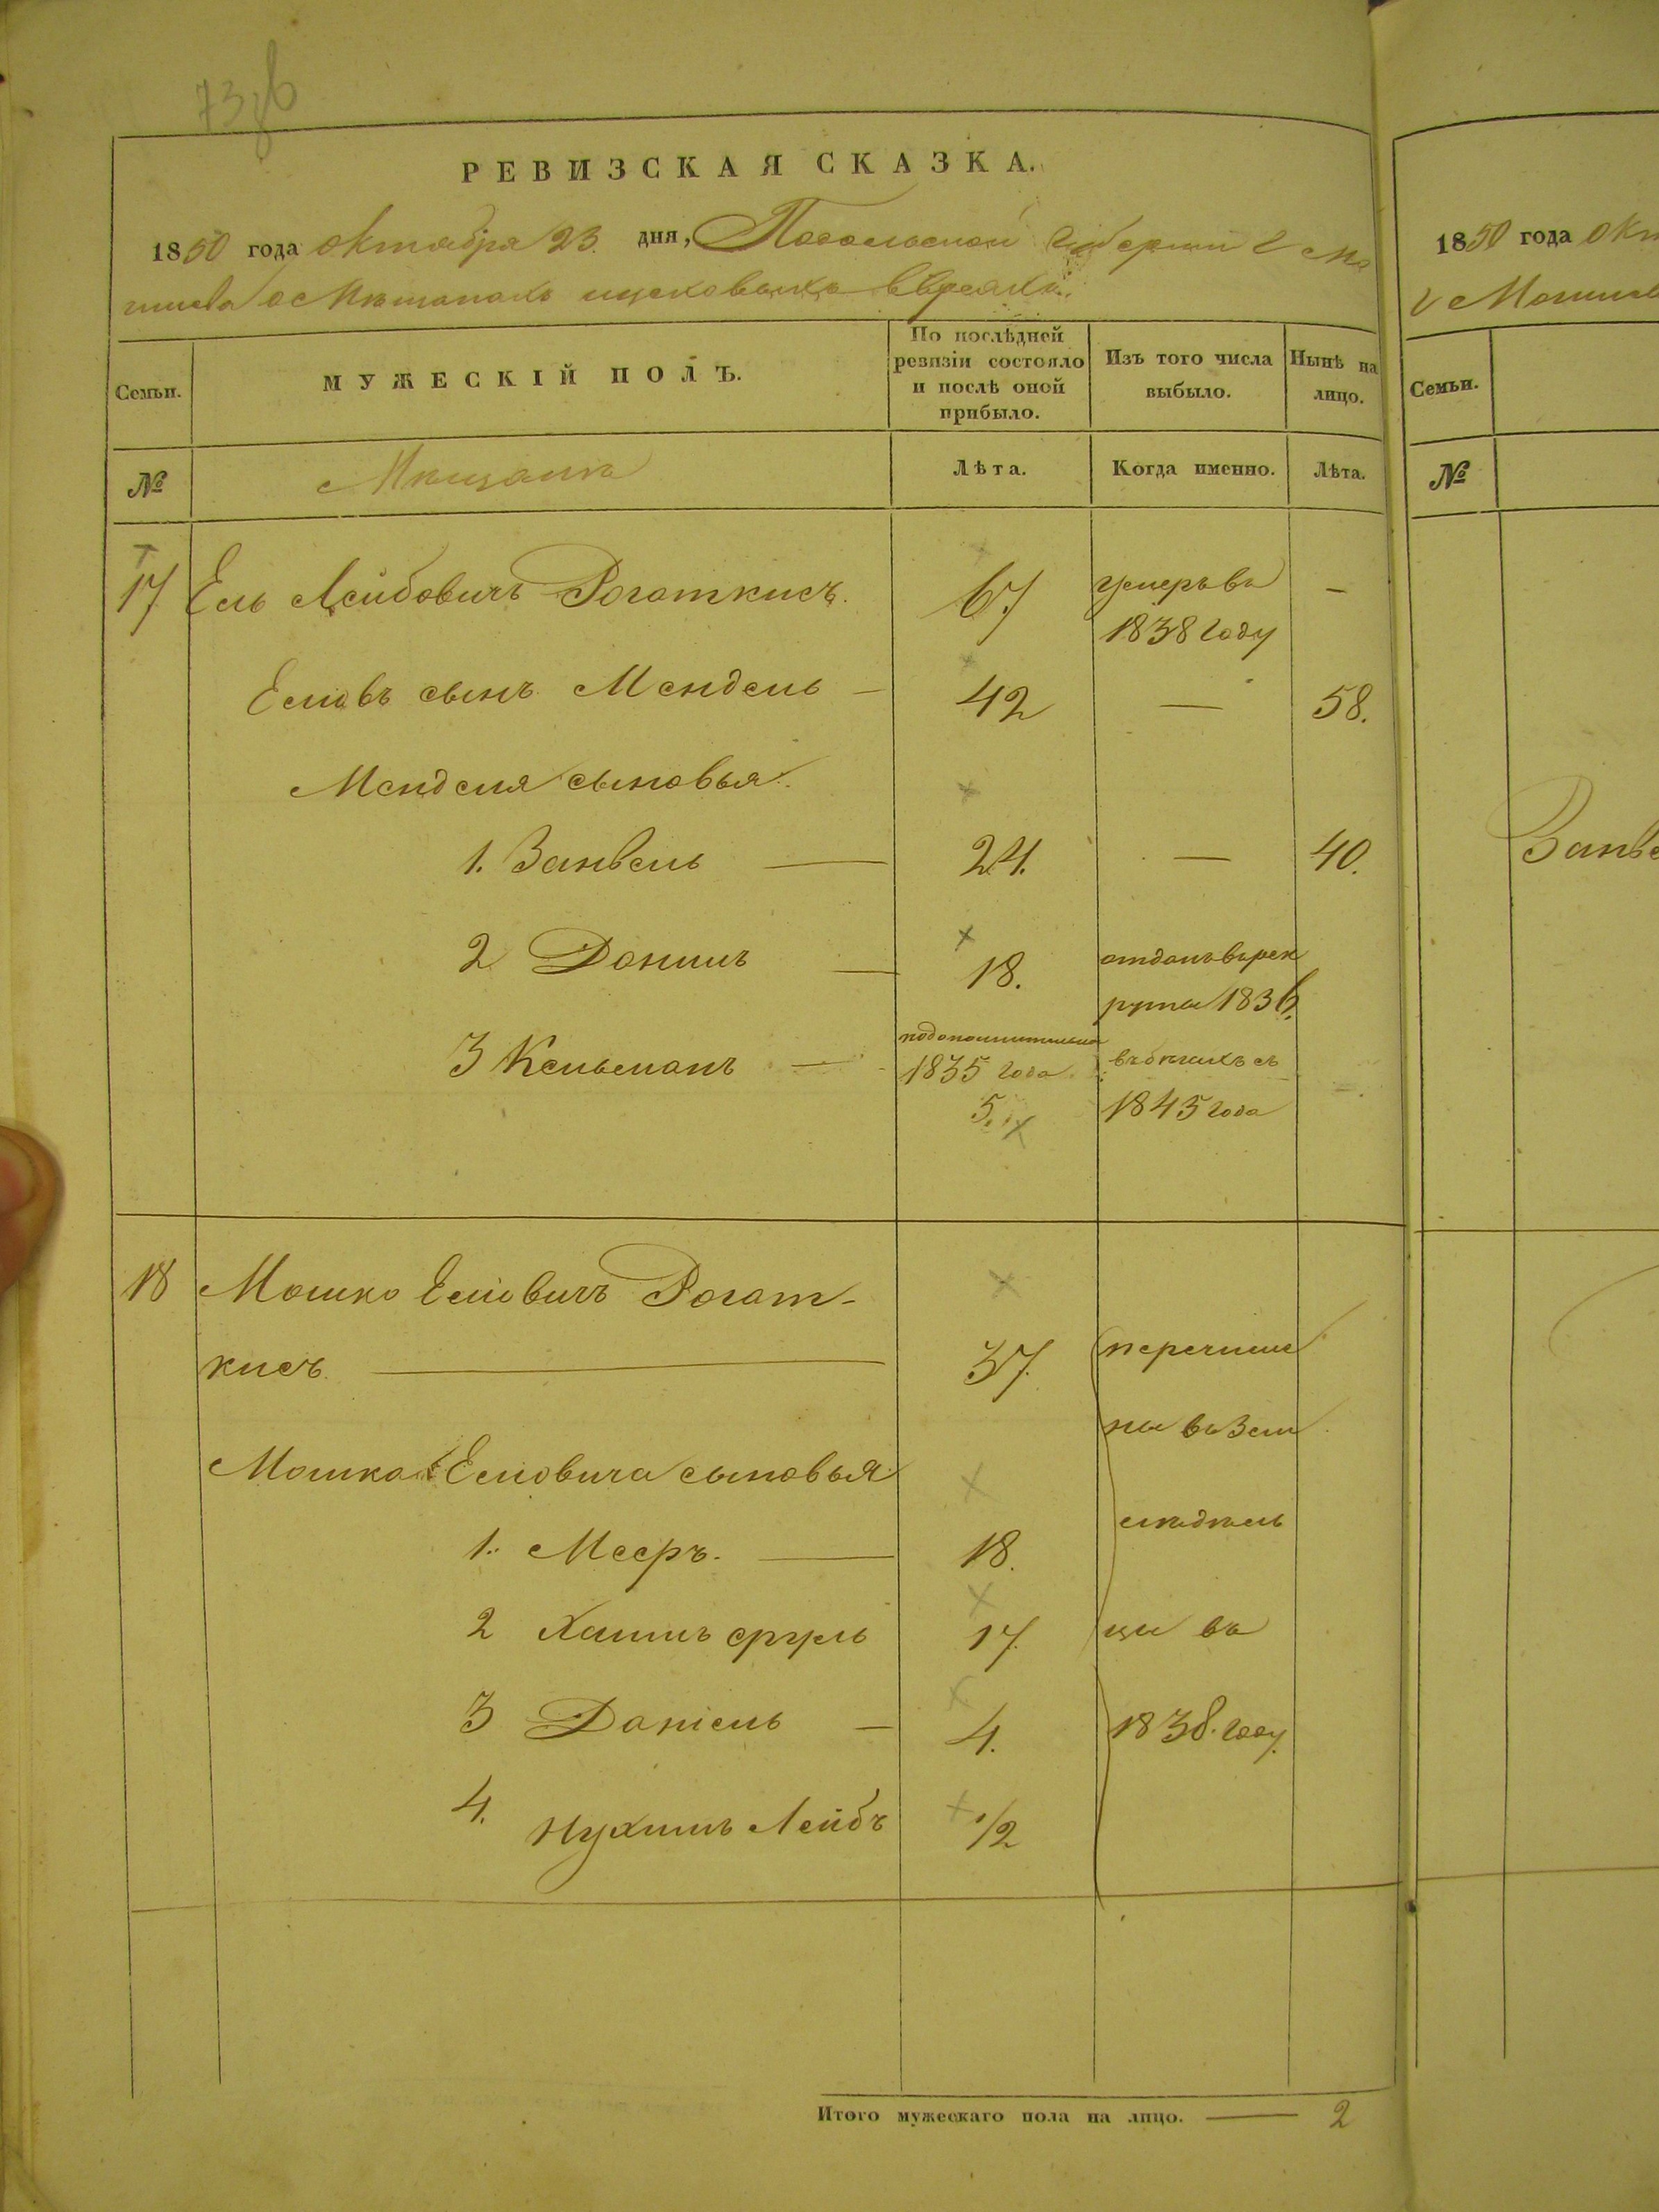 73об
РЕВИЗСКАЯ СКАЗКА.
1850 года октября 23 дня, Подольской Губерніи г Мо
гилева о Мѣщанахъ цеховыхъ Евреяхъ.
Семьи.
МУЖЕСКІЙ ПОЛЪ.
По послѣдней
ревизіи состояло
и послѣ оной
прибыло.
Изъ того числа
выбыло.
Нынѣ на
лицо.
№
Мѣщане
Лѣта.
Когда именно.
Лѣта.
17 Ель Лейбовичъ Рогаткисъ. 67 умеръ въ —
1838 году
Еліовъ сынъ Мендель — 42 — 58.
Менделя сыновья.
1. Занвель — 24. — 40.
2 Донишъ — 18. отданъ врек
рута 1836.
3 Кельманъ — подополнительной
1835 года въ бѣгахъ съ —
5. 1845 года
18 Мошко Еліовичъ Рогат-
кисъ — 37. перечисле
ны въ Зем
Мошка Еліовича сыновья
ледѣль
1. Мееръ. — 18.
2 Хаимъ сруль 17 цы въ
3 Даніель — 4. 1838. году.
4. Нухимъ Лейбъ 1/2
Итого мужескаго пола на лицо. — 2
1850 года окт
г Могиле
Семьи.
№
Занве